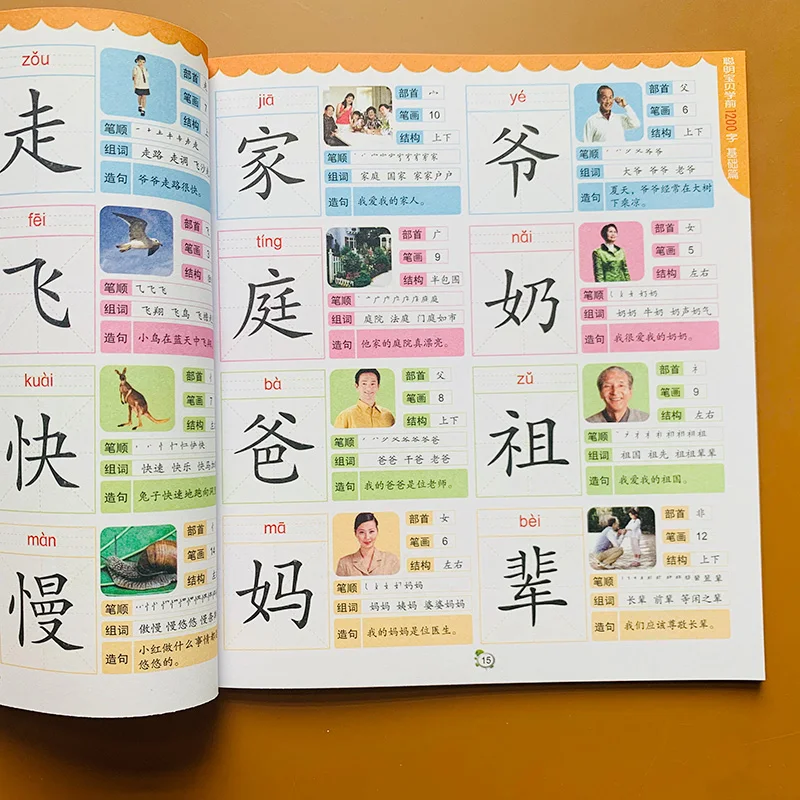 zǒu
走
部首
笔画
结构
笔顺
组词 走路 走调
造句 爷爷走路很快。
fēi
飞
部首
笔画
结构
笔顺
组词 飞翔 飞鸟
造句 小鸟在蓝天中飞
kuài
快
部首
笔画 7
结构
笔顺
组词 快速 快乐 快马加
造句 兔子快速地跑向
màn
慢
部首
笔画 14
结构
笔顺
组词 傲慢 慢悠悠 慢条
造句 小红做什么事情都
悠悠的。
聪明宝贝学前1200字 基础篇
jiā
家
部首 宀
笔画 10
结构 上下
笔顺
组词 家庭 国家 家家户户
造句 我爱我的家人。
yé
爷
部首 父
笔画 6
结构 上下
笔顺
组词 大爷 爷爷 老爷
造句 夏天，爷爷经常在大树
下乘凉。
tíng
庭
部首 广
笔画 9
结构 半包围
笔顺
组词 庭院 法庭 门庭如市
造句 他家的庭院真漂亮。
nǎi
奶
部首 女
笔画 5
结构 左右
笔顺
组词 奶奶 牛奶 奶声奶气
造句 我很爱我的奶奶。
bà
爸
部首 父
笔画 8
结构 上下
笔顺
组词 爸爸 干爸 老爸
造句 我的爸爸是位老师。
zǔ
祖
部首 礻
笔画 9
结构 左右
笔顺
组词 祖国 祖先 祖祖辈辈
造句 我爱我的祖国。
mā
妈
部首 女
笔画 6
结构 左右
笔顺
组词 妈妈 姨妈 婆婆妈妈
造句 我的妈妈是位医生。
bèi
辈
部首 非
笔画 12
结构 上下
笔顺
组词 长辈 前辈 等闲之辈
造句 我们应该尊敬长辈。
15